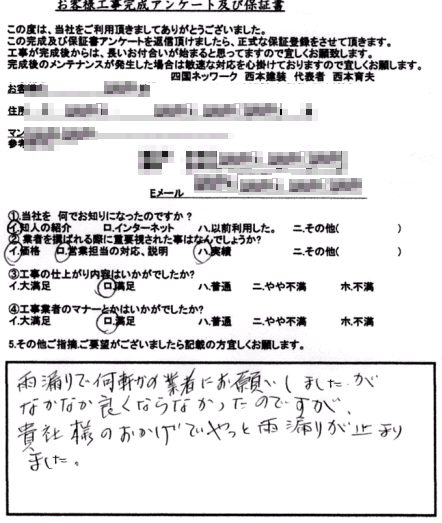 お客様工事完成アンケート及び保証書
この度は、当社をご利用頂きましてありがとうございました。
この完成及び保証書アンケートを返信頂けましたら、正式な保証登録をさせて頂きます。
工事が完成後からは、長いお付合いが始まると思ってますので宜しくお願致します。
完成後のメンテナンスが発生した場合は敏速な対応を心掛けておりますので宜しくお願します。
四国ネッワーク 西本建装 代表者 西本育夫
お客
住所
マン
参考
Eメール
①.当社を 何でお知りになったのですか?
イ.知人の紹介 ロ.インターネット ハ.以前利用した。 ニ.その他( )
②.業者を選ばれる際に重要視された事はなんでしょうか?
イ.価格 ロ.営業担当の対応、説明 ハ.実績 ニ.その他( )
③工事の仕上がり内容はいかがでしたか?
イ.大満足 ロ.満足 ハ.普通 ニ.やや不満 ホ.不満
④工事業者のマナーとかはいかがでしたか?
イ.大満足 ロ.満足 ハ.普通 ニ.やや不満 ホ.不満
5.その他ご指摘、ご要望がございましたら記載の方宜しくお願します。
雨漏りで何軒かの業者にお願いしましたが
なかなか良くならなかったのですが、
貴社様のおかげでやっと雨漏りが止まり
ました。